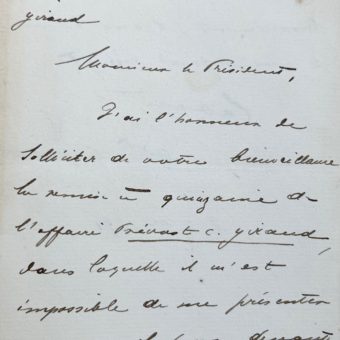 giraud
Monsieur le Président,
J'ai l'honneur de
solliciter de votre bienveillance
la remise à quinzaine de
l'affaire Prévost c. giraud,
dans laquelle il m'est
impossible de me présenter